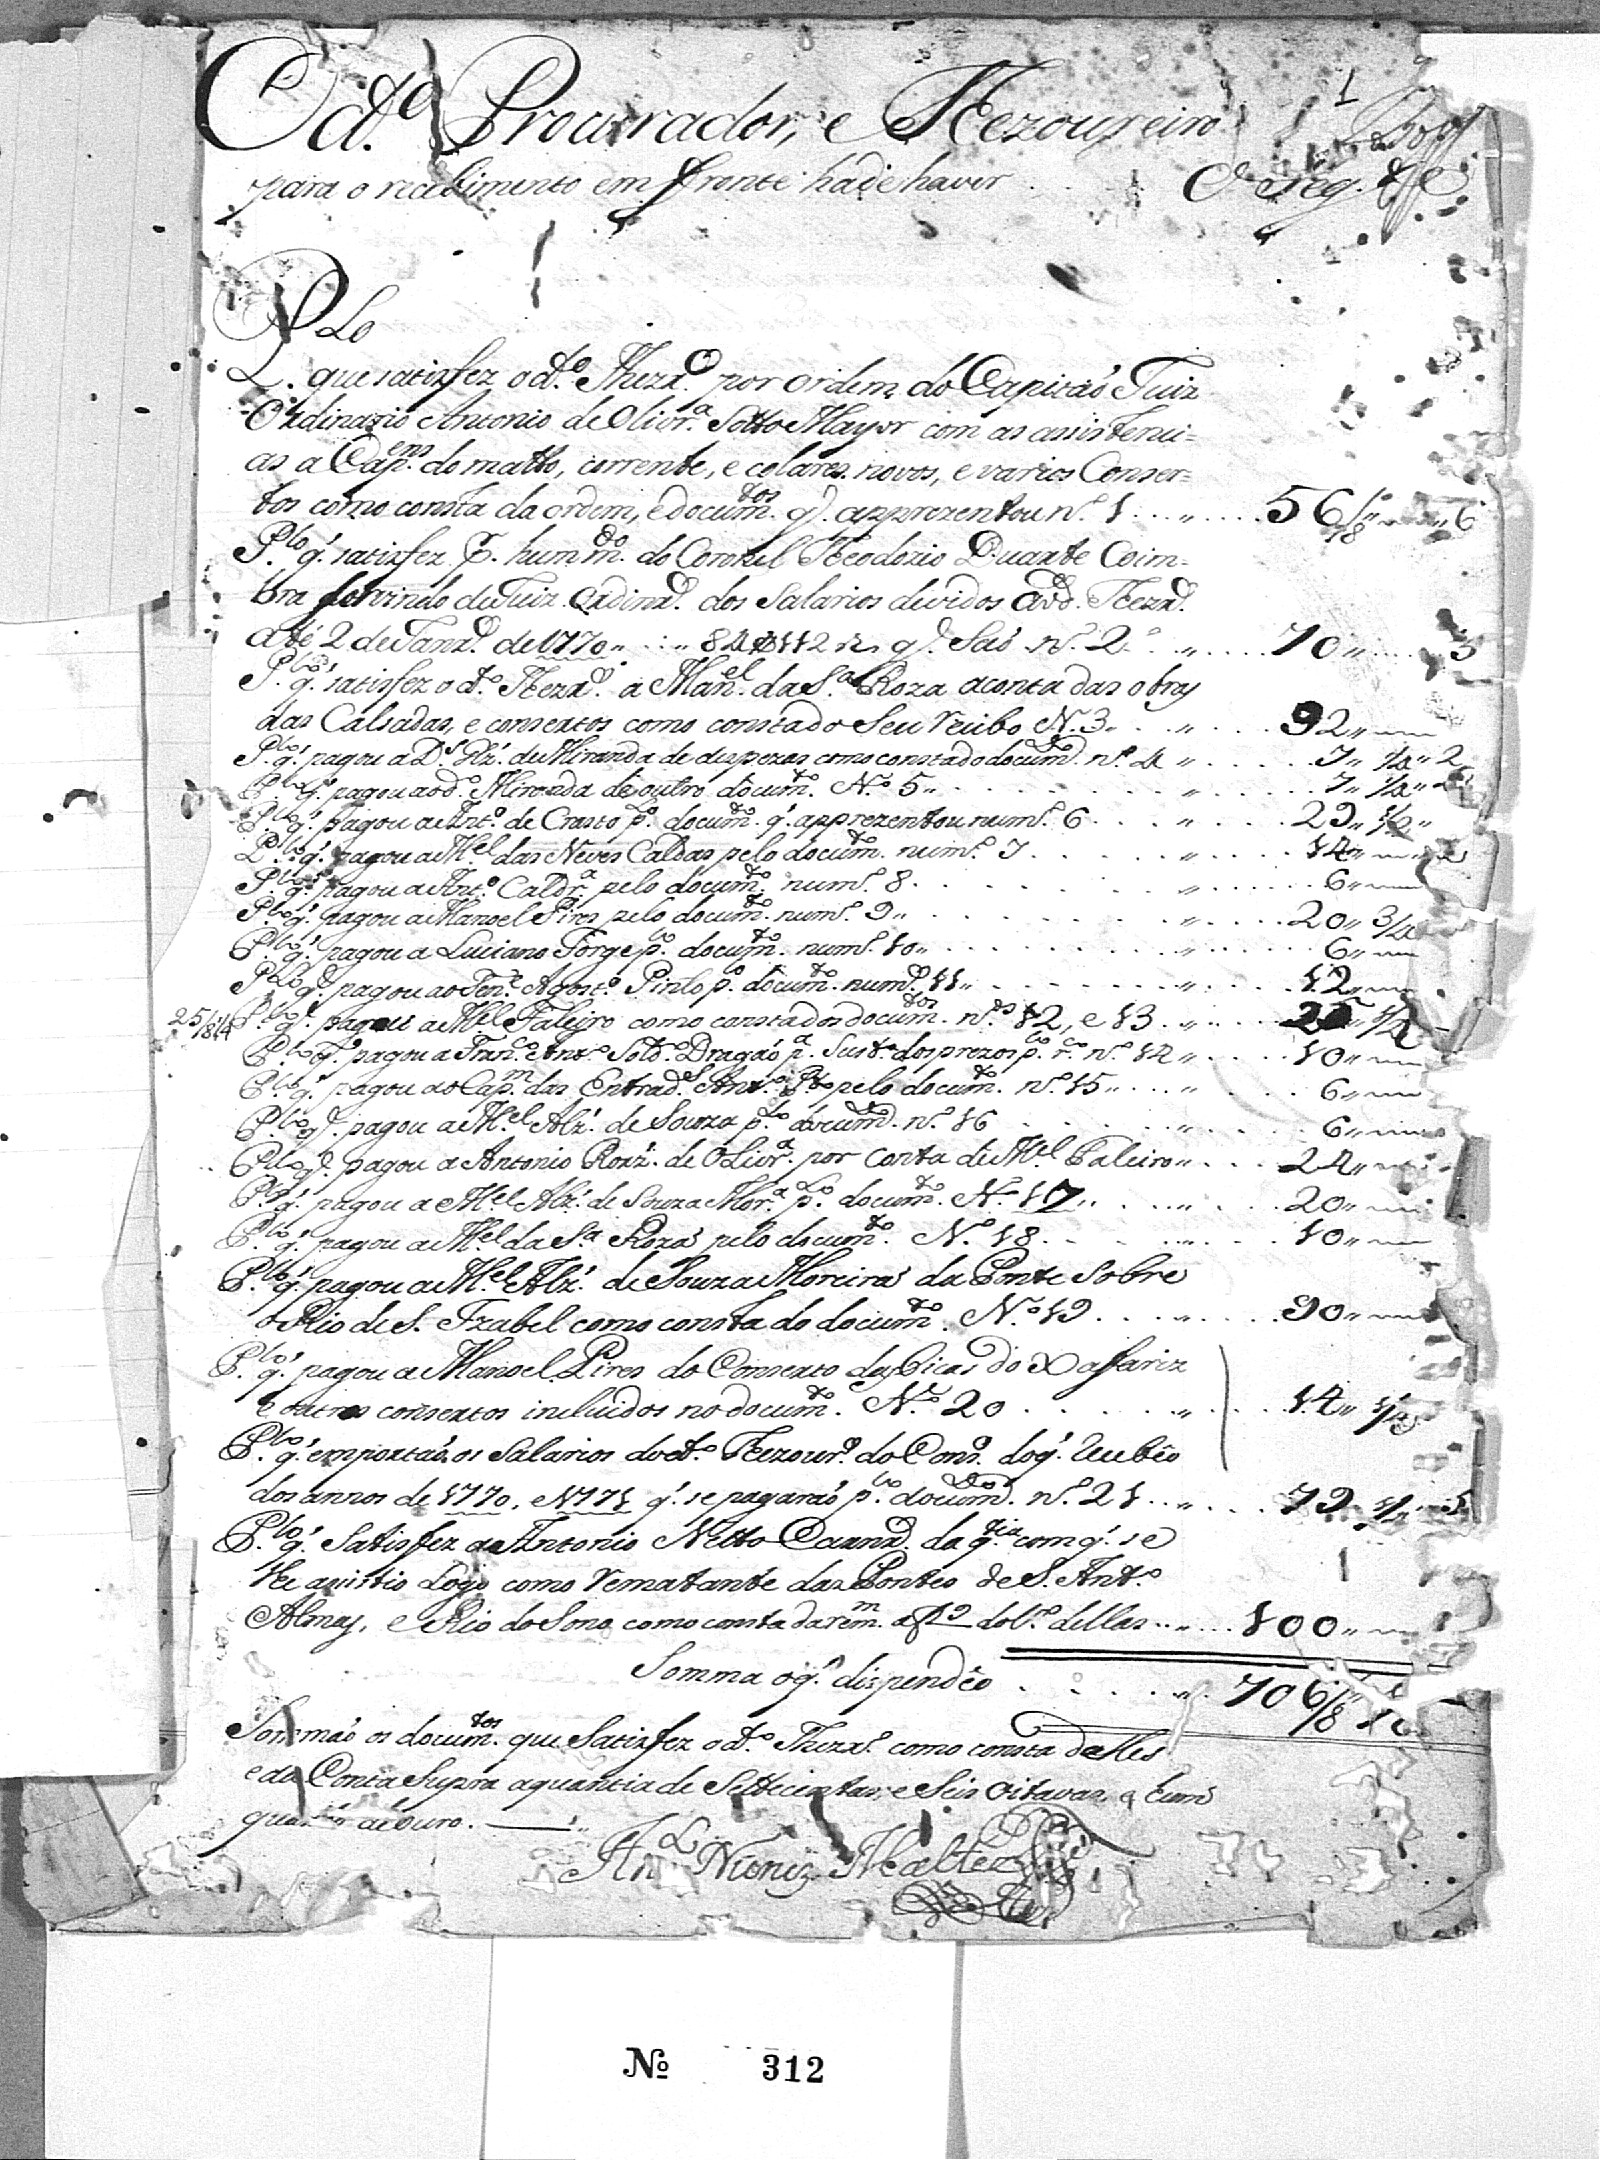 1
O d.º Procurador, e Thezoureiro
para o recebimento em fronte hade haver . . . O seg.te
P.lo
q. que satisfez o d.º Thezr.º por ordem do Capitaõ Juiz
Ordinario Antonio de Olivr.ª Sotto Mayor com as assistenci=
as a Cap.ens do matto, corrente, e colares novos, e varios Conser=
tos como consta da ordem, e docum.tos q̃. apprezentou n.º 1 . . . 56/8 " 6
P.lo q̃. satisfez p. hum m.do do Coronel Theodozio Duarte Coim=
bra servindo de Juiz Ordinr.º dos Salarios devidos ao d.º Thezr.º
até 2 de Janr.º de 1770 " . . " 84$112 rs q̃. Saõ n.º 2 . . . 70 " 5
P.lo q̃. satisfez o d.º Thezr.º a Man.el da S.ª Roza a conta das obras
das Calsadas, e consertos como consta do Seu recibo N. 3 . . . 92 "
P.lo q̃. pagou a D.s Alz̃. de Miranda de despezas como consta do docum.to n.º 4 " . . . 7 " 1/4 " 2
P.lo q̃. pagou ao d.º Miranda de outro docum.to N.º 5 " . . . 7 " 1/4 " 2
P.lo q̃. pagou a Ant.º de Crasto p.º docum.to q̃. apprezentou num.º 6 . . . 29 " 1/2 "
P.lo q̃. pagou a M.el das Neves Caldas pelo docum.to num.º 7 . . . 14 "
P.lo q̃. pagou a Ant.º Caldr.ª pelo docum.to num.º 8 . . . 6 "
P.lo q̃. pagou a Manoel Pires pelo docum.to num.º 9 " . . . 20 " 3/4
P.lo q̃. pagou a Luciano Jorge p.lo docum.to num.º 10 " . . . 6 "
P.lo q̃. pagou ao Ten.e Agost.º Pinto p.º docum.to num.º 11 " . . . 12 "
25/8 1/4 P.lo q̃. pagou a M.el Faleyro como consta dos docum.tos n.os 12, e 13 . . . 25 " 1/4
P.lo q̃. pagou a Fran.co Ant.º Sold.º Dragaõ p.ª Sust.º dos prezos p.lo r.º n.º 14 " . . . 10 "
P.lo q̃. pagou ao Cap.m das Entrad.s Ant.º pelo docum.to n.º 15 " . . . 6 "
P.lo q̃. pagou a M.el Alz̃. de Souza p.lo docum.to n.º 16 . . . 6 "
P.lo q̃. pagou a Antonio Roiz̃. de Olivr.ª por conta de M.el Faleiro " . . . 24 "
P.lo q̃. pagou a M.el Alz̃. de Souza Mor.ª p.lo docum.to N.º 17 " . . . 20 "
P.lo q̃. pagou a M.el da S.ª Roza pelo docum.to N.º 18 . . . 10 "
P.lo q̃. pagou a M.el Alz̃. de Souza Moreira da Ponte Sobre
o Rio de S. Izabel como consta do docum.to N.º 19 . . . 90 "
P.lo q̃. pagou a Manoel Pires do Conserto das bicas do Xaffariz
e outros consertos incluidos no docum.to N.º 20 . . . 14 " 1/4
P.lo q̃. emportaõ os Salarios do d.º Thezour.º do Com.º do q̃. recebeo
dos annos de 1770, e 1771 q̃. se pagaraõ p.lo docum.to n.º 21 . . . 72 1/2 " 5
P.lo q̃. Satisfez a Antonio Netto Carnr.º da q.tia com q̃. se
lhe assistio Logo como rematante das Pontes de S. Ant.º
Almas, e Rio do Sono como consta da rem.m a f 19 do L.º dellas . . . 100 "
Somma o q̃. dispendêo . . . 706/8
Sommaõ os docum.tos que Satisfez o d.º Thezr.º como consta delles
e da Conta Supra a quantia de Settecentas, e Seis oitavas, e hum
quarto de Ouro.
Nº 312